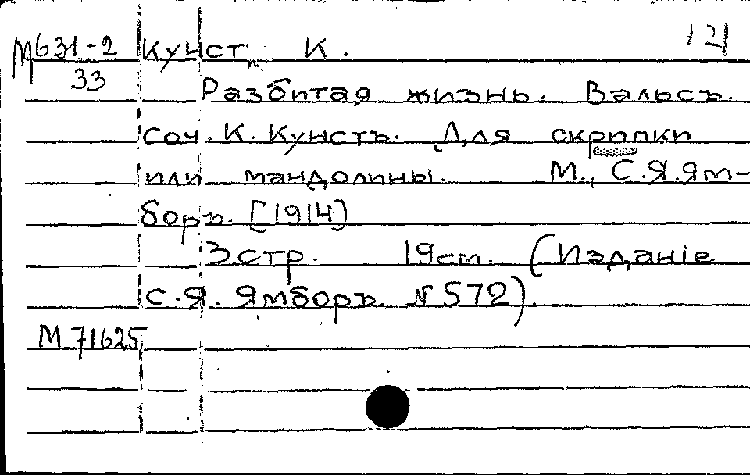 М631-2 Кунст, К.
33
Разбитая жизнь. Вальсъ.
соч. К. Кунстъ. Для скрипки
или мандолины. М., С.Я. Ям-
боръ. [1914]
3 стр. 19 см. (Изданіе
С.Я. Ямборъ. № 572).
М 71625